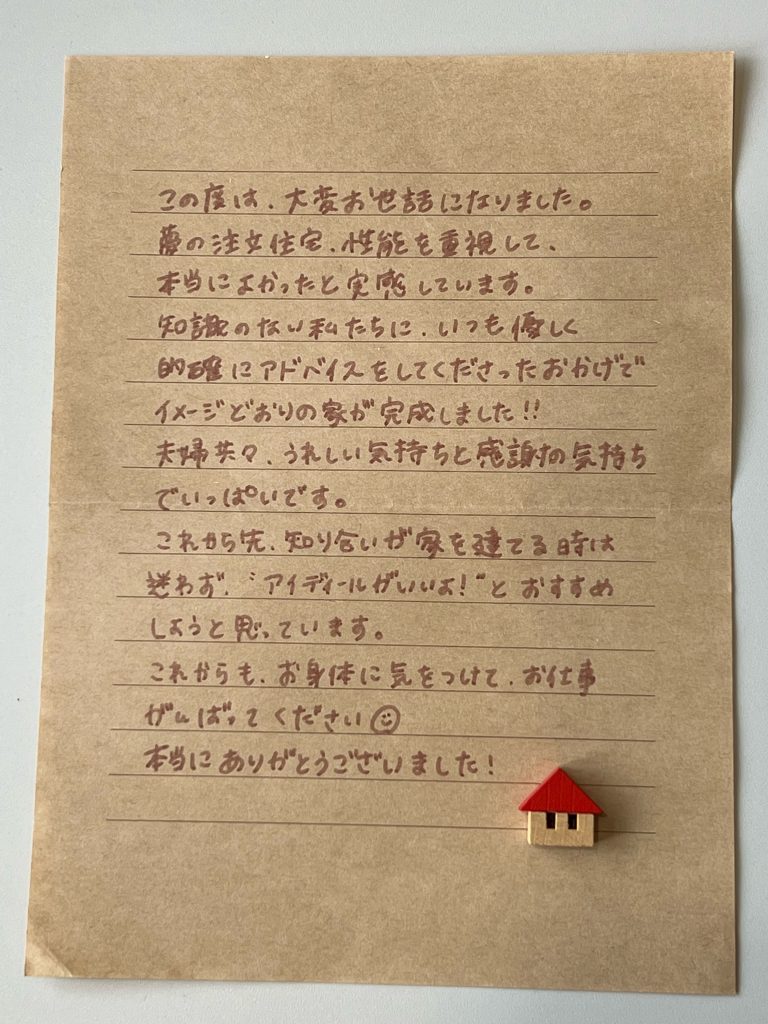 この度は、大変お世話になりました。
夢の注文住宅、性能を重視して、
本当によかったと実感しています。
知識のない私たちに、いつも優しく
的確にアドバイスをしてくださったおかげで
イメージどおりの家が完成しました!!
夫婦共々、うれしい気持ちと感謝の気持ち
でいっぱいです。
これから先、知り合いが家を建てる時は
迷わず、“アイディールがいいよ!”と おすすめ
しようと思っています。
これからも、お身体に気をつけて、お仕事
がんばってください☺
本当にありがとうございました!